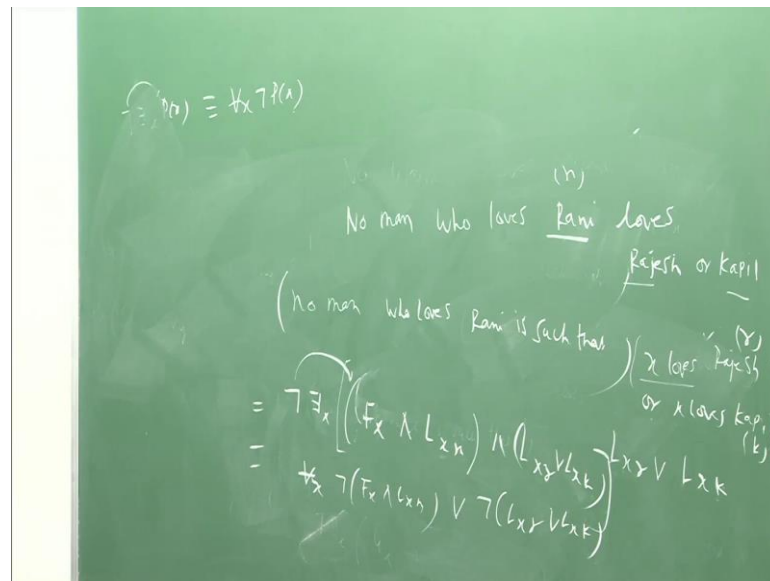 ¬∃x P(x) ≡ ∀x ¬P(x)
(n)
No man who loves Rani loves
Rajesh or Kapil
(no man who loves Rani is such that) (x loves Rajesh
(r)
or x loves Kapi
(k)
= ¬∃x [(Fx ∧ Lxn) ∧ (Lxr ∨ Lxk)] Lxr ∨ Lxk
= ∀x ¬(Fx ∧ Lxn) ∨ ¬(Lxr ∨ Lxk)